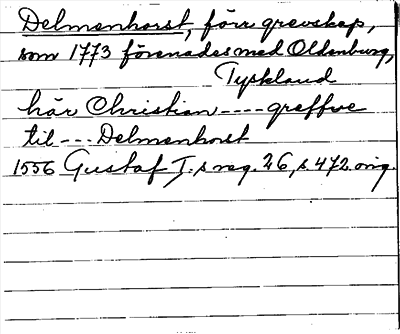 Delmenhorst, förr grevskap,
som 1773 förenades med Oldenburg,
Tyskland
här Christian ---- greffve
til --- Delmenhorst
1556 Gustaf I.s reg. 26, s. 472 orig.